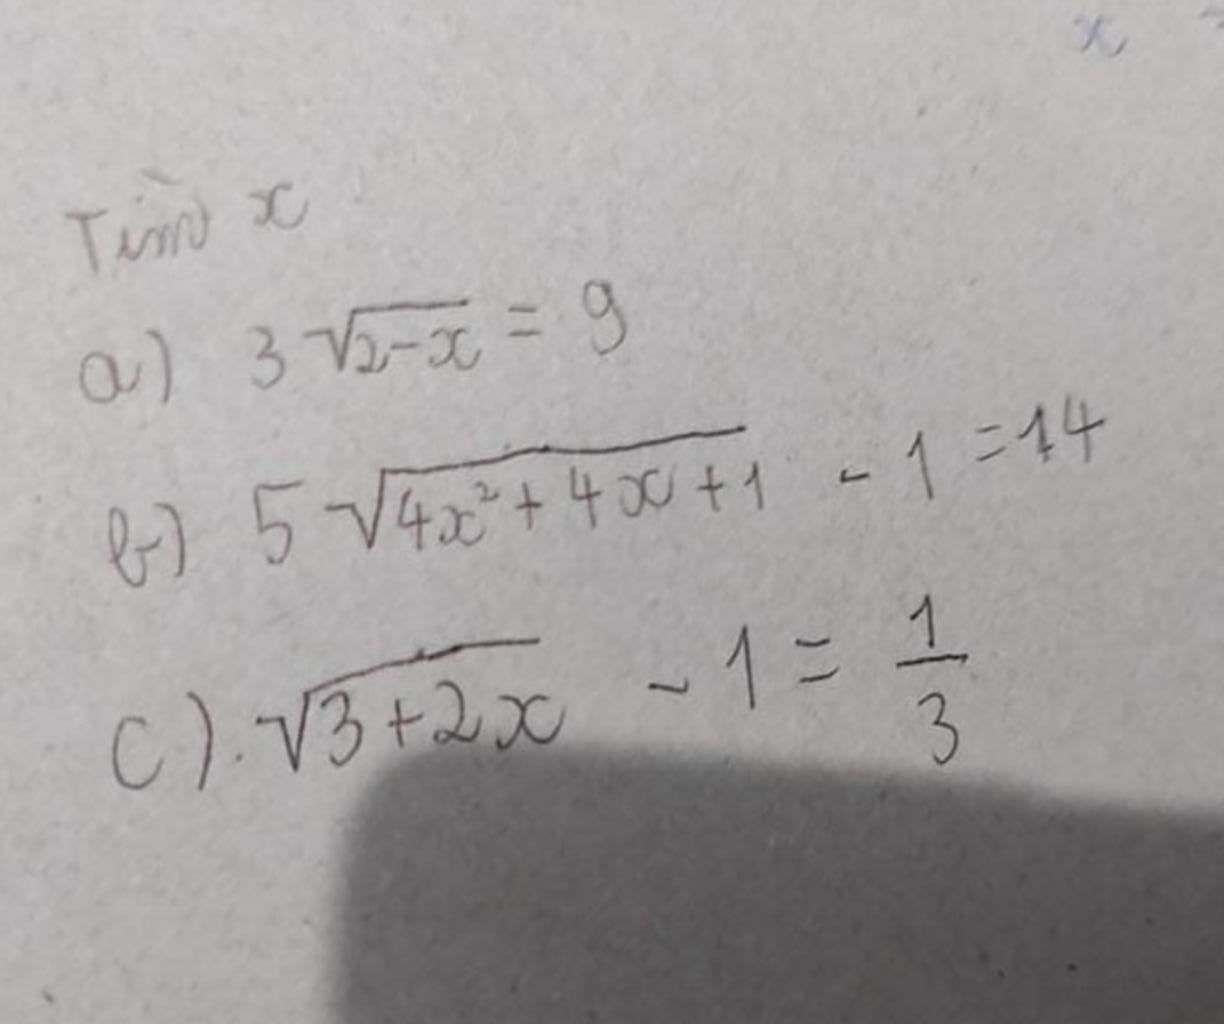 x
Tìm x
a) 3 √2-x = 9
b) 5 √4x² + 4x + 1 - 1 = 14
c). √3+2x - 1 = 1/3